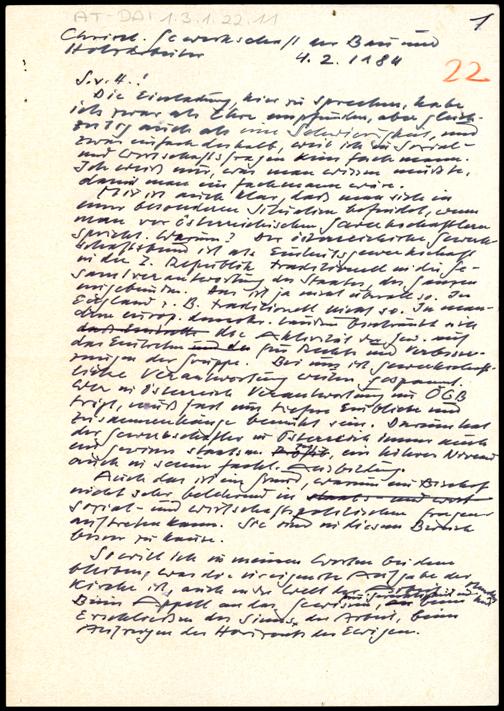 AT-DAI 1.3.1.22.11
1
Christl. Gewerkschaft der Bau und
Holzarbeiter 4.2.1984
22
S.v.H.!
Die Einladung, hier zu sprechen, habe
ich zwar als Ehre empfunden, aber gleich-
zeitig auch als eine Schwierigkeit, und
zwar einfach deshalb, weil ich in Sozial-
und Wirtschaftsfragen kein Fachmann.
Ich weiß nur, was man wissen müßte,
damit man ein Fachmann wäre.
Mir ist auch klar, daß man sich in
einer besonderen Situation befindet, wenn
man vor österreichischen Gewerkschaftern
spricht. Warum? Der österreichische Gewerk-
schaftsbund ist als Einheitsgewerkschaft
in der 2. Republik traditionell in die Ge-
samtverantwortung des Staates, des Ganzen
eingebunden. Das ist ja nicht überall so. In
England z. B. traditionell nicht so. In man-
chen europ. Ländern beschränkt sich
die Aktivität d. Gew. auf
das Einholen von Rechte und Verbesse-
rungen der Gruppe. Bei uns ist gewerkschaft-
liche Verantwortung weiter gespannt.
Wer in Österreich Verantwortung im ÖGB
trägt, muß fast um tiefere Einblicke und
Zusammenhänge bemüht sein. Darum hat
der Gewerkschafter in Österreich immer auch
ein gewisses staatsm. ein hohes Niveau
auch in seiner fachl. Ausbildung.
Auch das ist ein Grund, warum ein Bischof
nicht sehr belehrend in
sozial- und wirtschaftspolitischen Fragen
auftreten kann. Sie sind in diesem Bereich
besser zu hause.
So will ich in meinen Worten bei dem
bleiben, was die ureigenste Aufgabe der
Kirche ist, auch in der Welt der
Beim Appell an das Gewissen, beim
Erschließen des Sinns, der Arbeit, beim
Aufzeigen des Horizonts des Ewigen.